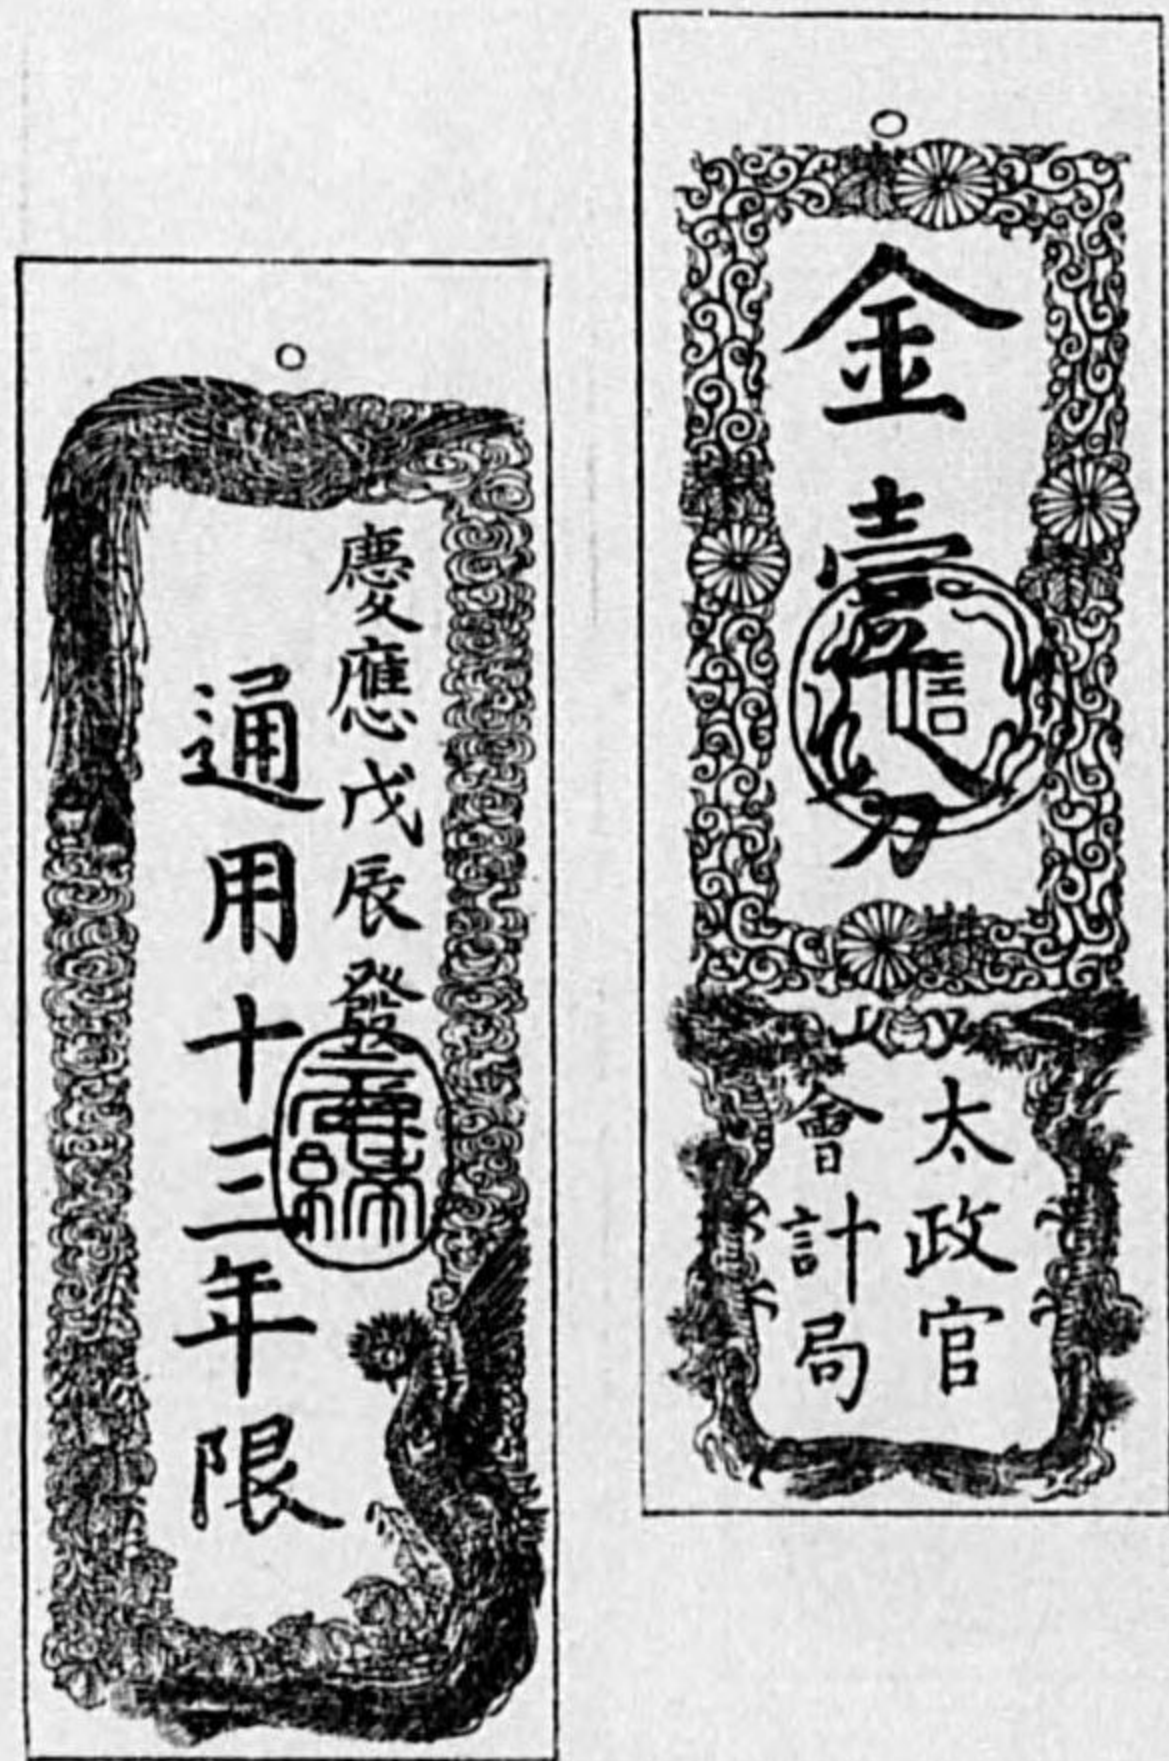 金壹分
信
太政官
會計局
慶應戊辰發
通用十三年限